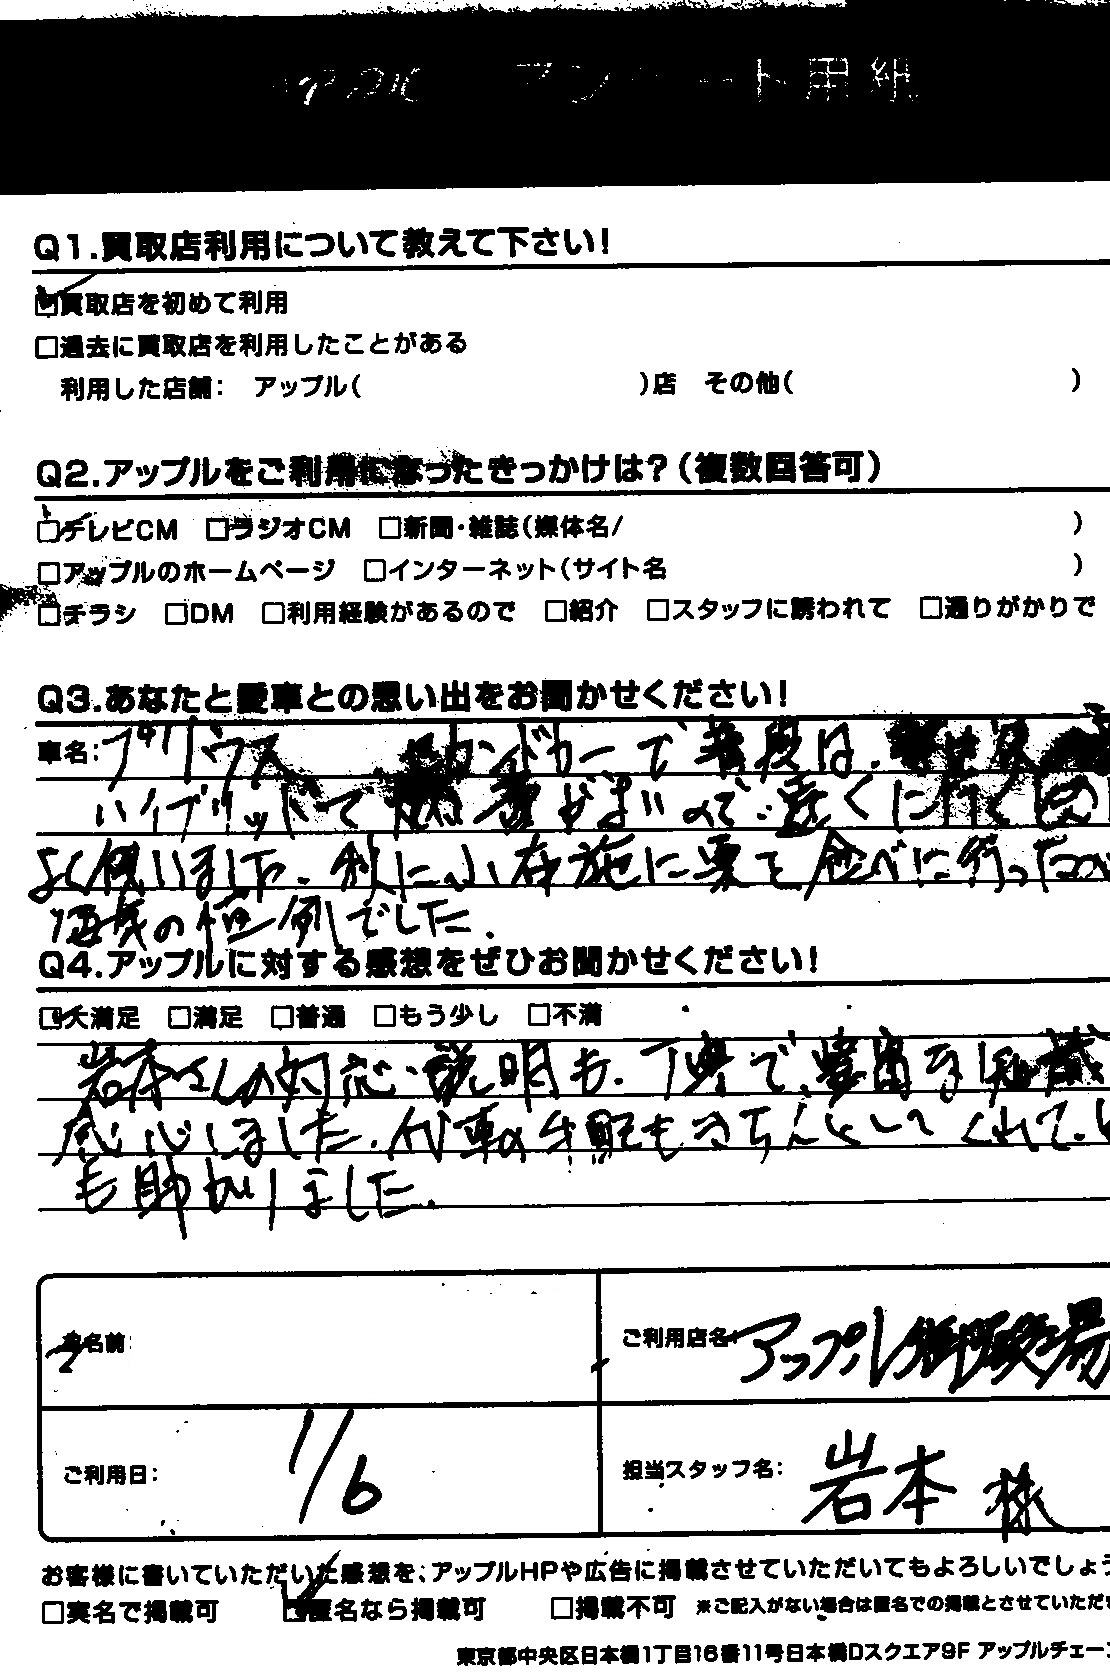 アンケート用紙
Q1.買取店利用について教えて下さい!
買取店を初めて利用
□過去に買取店を利用したことがある
利用した店舗: アップル( )店 その他( )
Q2.アップルをご利用になったきっかけは?(複数回答可)
□テレビCM □ラジオCM □新聞・雑誌(媒体名/ )
□アップルのホームページ □インターネット(サイト名 )
□チラシ □DM □利用経験があるので □紹介 □スタッフに誘われて □通りがかりで
Q3.あなたと愛車との思い出をお聞かせください!
車名:プリウス セカンドカーで普段は、
ハイブリッドで燃費がよいので、遠くに行く時
よく使いました。秋に小布施に栗を食べに行ったのが
毎年の恒例でした.
Q4.アップルに対する感想をぜひお聞かせください!
大満足 □満足 □普通 □もう少し □不満
岩本さんの対応・説明も、丁寧で、豊富な知識
感心しました、代車の手配もきちんとしてくれて、
も助かりました.
お名前:
ご利用店名:アップル
ご利用日: 1/6
担当スタッフ名: 岩本 様
お客様に書いていただいた感想を、アップルHPや広告に掲載させていただいてもよろしいでしょう
□実名で掲載可 匿名なら掲載可 □掲載不可 ※ご記入がない場合は匿名での掲載とさせていただき
東京都中央区日本橋1丁目16番11号日本橋Dスクエア9F アップルチェーン